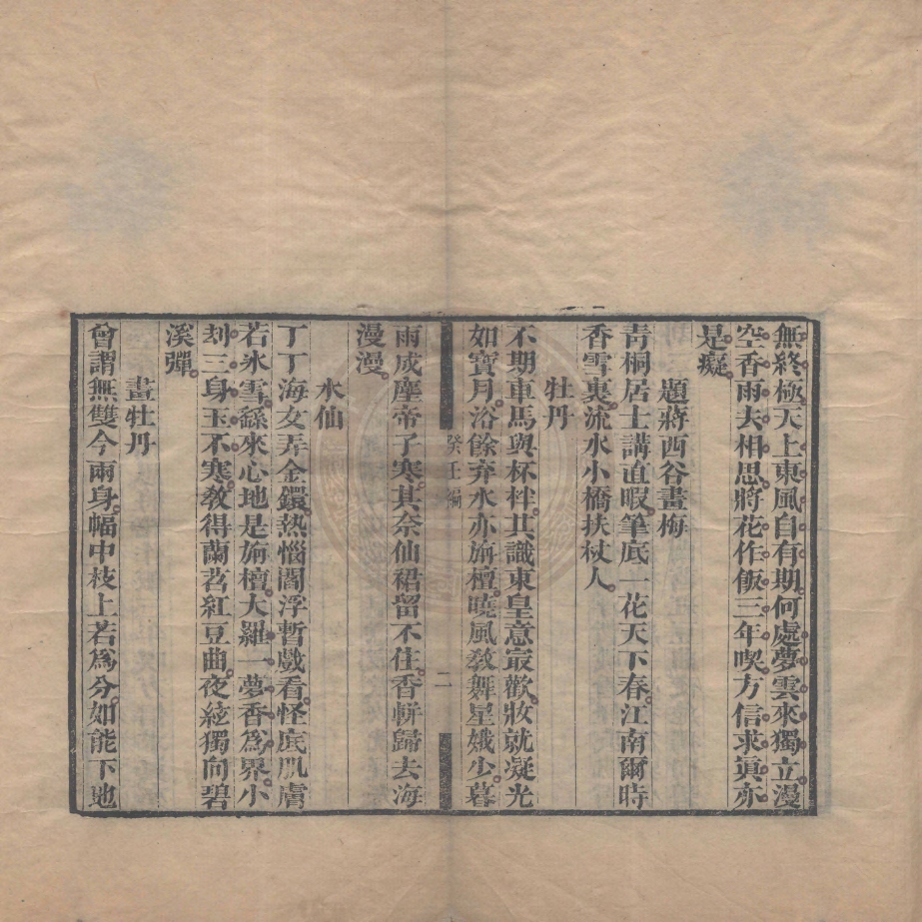 無終極天上東風自有期何處夢雲來獨立漫
空香雨夫相思將花作飯三年喫方信求眞亦
是癡
題蔣西谷畫梅
青桐居士講直暇筆底一花天下春江南爾時
香雪裏流水小橋扶杖人
牡丹
不期車馬與杯柈其識東皇意㝡歡妝就凝光
如寶月浴餘弃水亦旃檀曉風教舞星娥少暮
癸壬編
二
雨成塵帝子寒其奈仙裙留不住香輧歸去海
漫漫
水仙
丁丁海女弄金鐶熱惱閻浮暫戲看怪底肌膚
若氷雪繇來心地是旃檀大羅一夢香爲界小
刦三身玉不寒教得蘭苕紅豆曲夜絃獨向碧
溪彈
畫牡丹
曾謂無雙今兩身幅中枝上若爲分如能下地